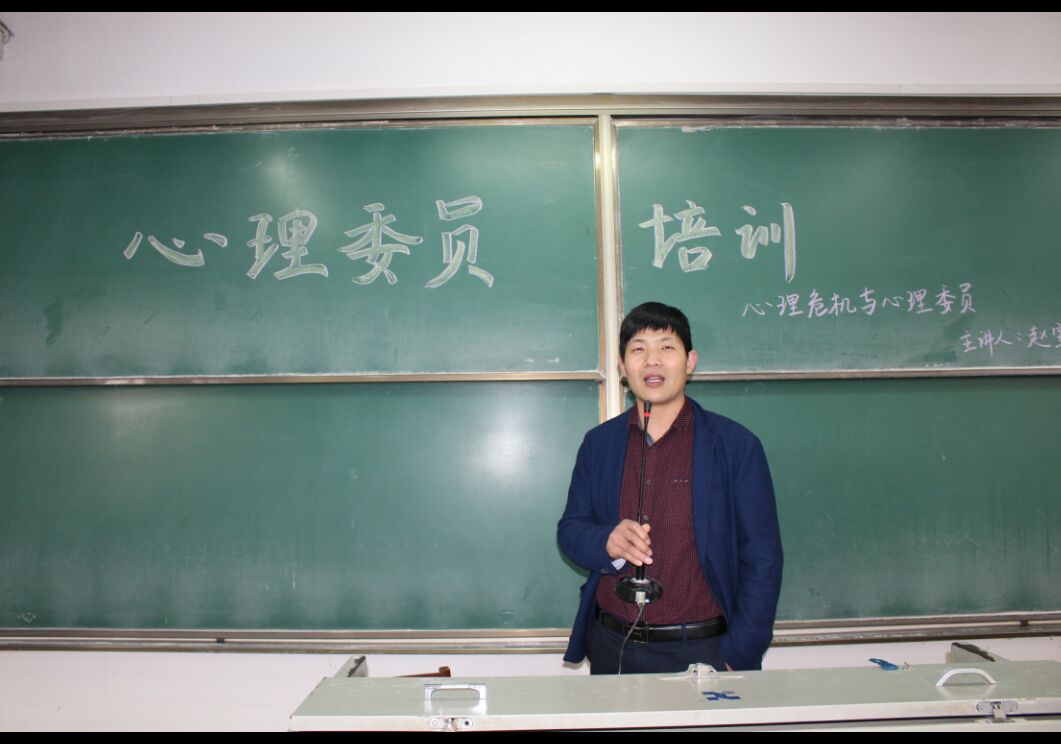 心理委员 培训
心理危机与心理委员
主讲人：赵